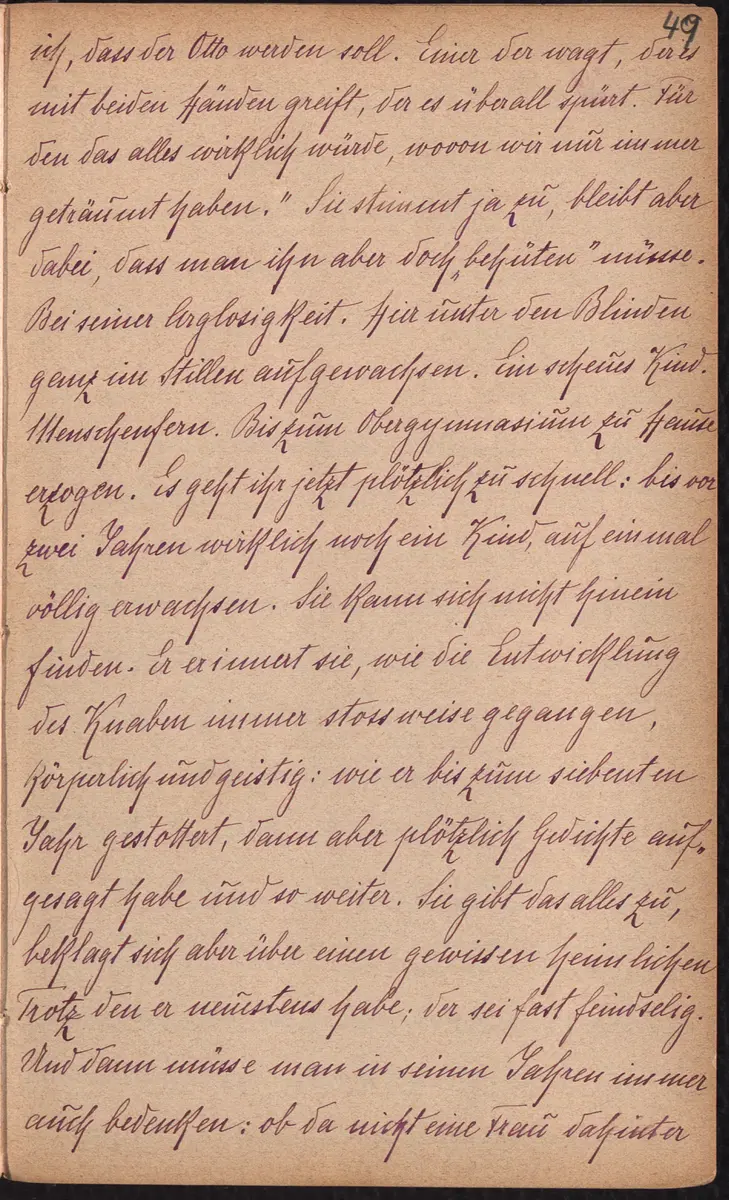 49
ich, dass der Otto werden soll. Einer der wagt, der es
mit beiden Händen greift, der es überall spürt. Für
den das alles wirklich würde, wovon wir nur immer
geträumt haben." Sie stimmt ja zu, bleibt aber
dabei, dass man ihn aber doch „behüten" müsse.
Bei seiner Arglosigkeit. Hier unter den Blinden
ganz im Stillen aufgewachsen. Ein scheues Kind.
Menschenfern. Bis zum Obergymnasium zu Hause
erzogen. Es geht ihr jetzt plötzlich zu schnell: bis vor
zwei Jahren wirklich noch ein Kind, auf einmal
völlig erwachsen. Sie kann sich nicht hinein
finden. Er erinnert sie, wie die Entwicklung
des Knaben immer stossweise gegangen,
körperlich und geistig: wie er bis zum siebenten
Jahr gestottert, dann aber plötzlich Gedichte auf-
gesagt habe und so weiter. Sie gibt das alles zu,
beklagt sich aber über einen gewissen heimlichen
Trotz den er neuestens habe; der sei fast feindselig.
Und dann müsse man in seinen Jahren immer
auch bedenken: ob da nicht eine Frau dahinter